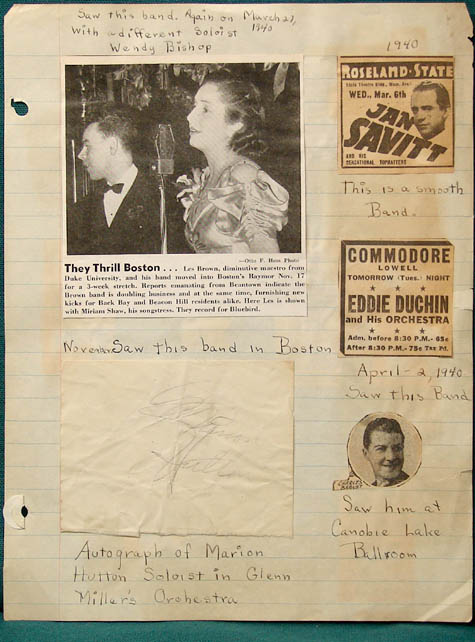 Saw this band. Again on March 21,
1940
with a different Soloist
Wendy Bishop
—Otto F. Hess Photo
They Thrill Boston . . . Les Brown, diminutive maestro from
Duke University, and his band moved into Boston's Raymor Nov. 17
for a 3-week stretch. Reports emanating from Beantown indicate the
Brown band is doubling business and at the same time, furnishing new
kicks for Back Bay and Beacon Hill residents alike. Here Les is shown
with Miriam Shaw, his songstress. They record for Bluebird.
November Saw this band in Boston
Autograph of Marion
Hutton Soloist in Glenn
Miller's Orchestra
1940
ROSELAND-STATE
WED., Mar. 6th
JAN
SAVITT
AND HIS
SENSATIONAL TOPHATTERS
This is a smooth
Band.
COMMODORE
LOWELL
TOMORROW (Tues.) NIGHT
EDDIE DUCHIN
and His ORCHESTRA
Adm. before 8:30 P.M.- 65c
After 8:30 P.M.- 75c Tax Pd.
April - 2, 1940
Saw this Band
Saw him at
Canobie Lake
Ballroom